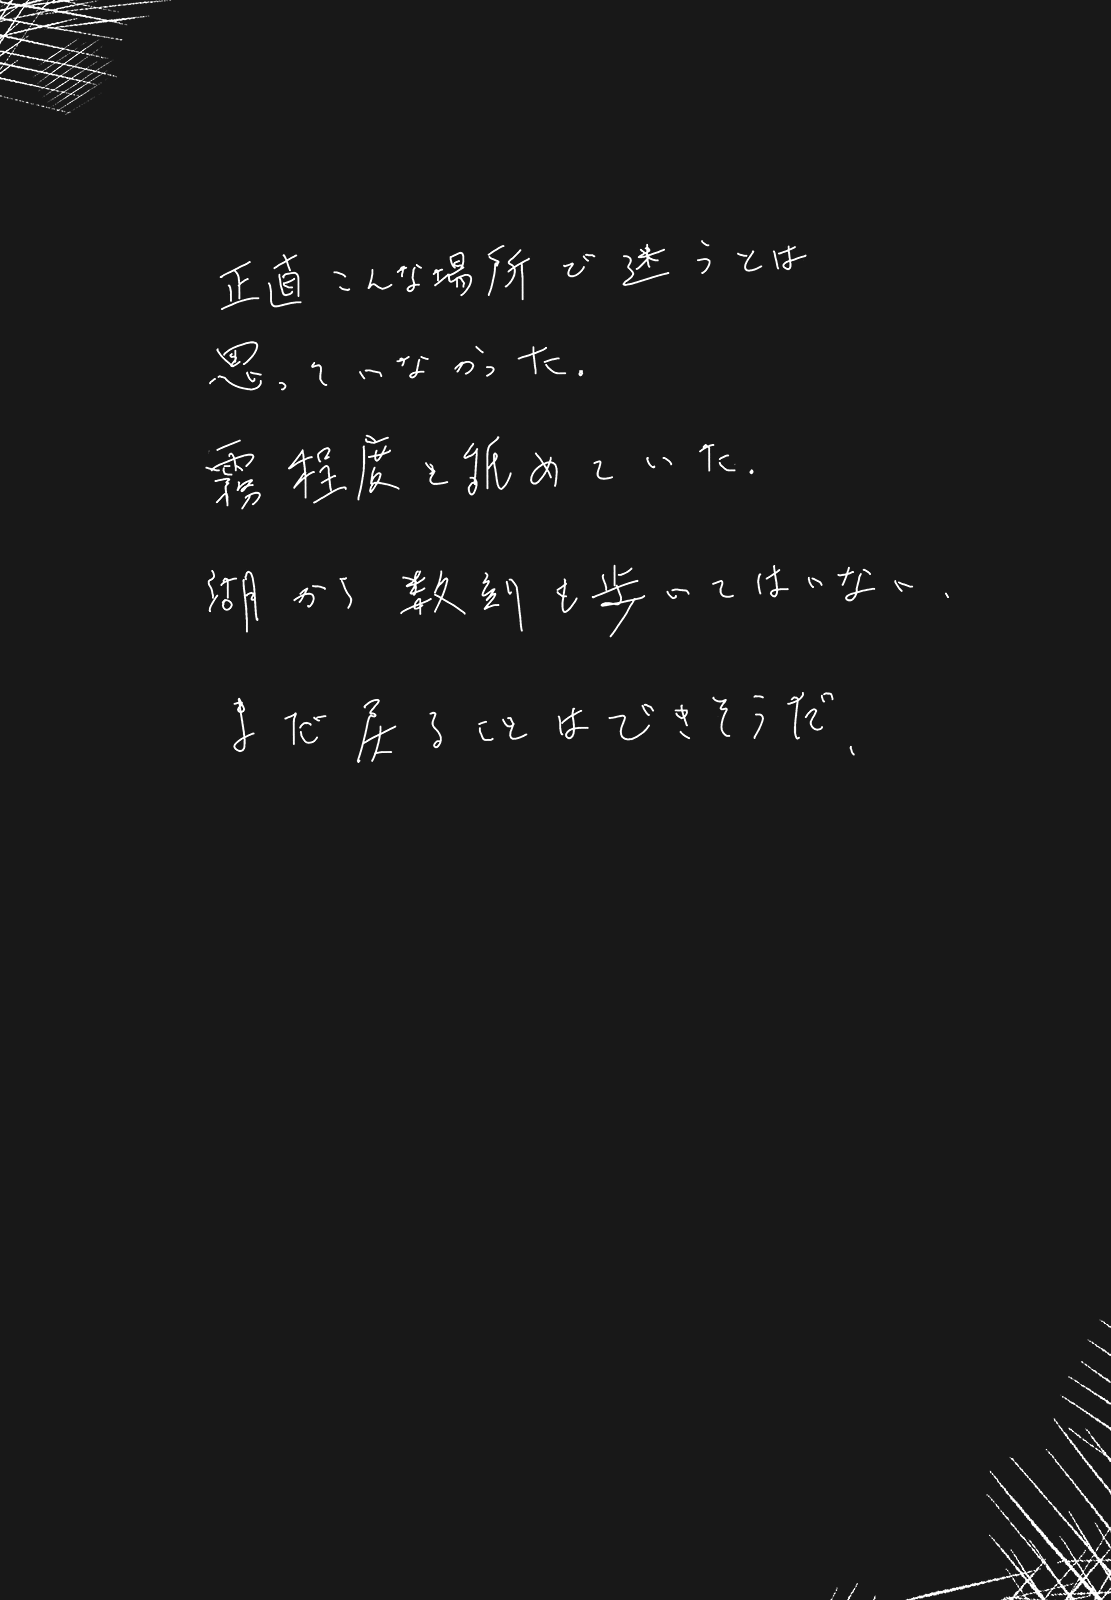 正直こんな場所で迷うとは
思っていなかった.
霧程度と舐めていた.
湖から数刻も歩いてはいない、
まだ戻ることはできそうだ、